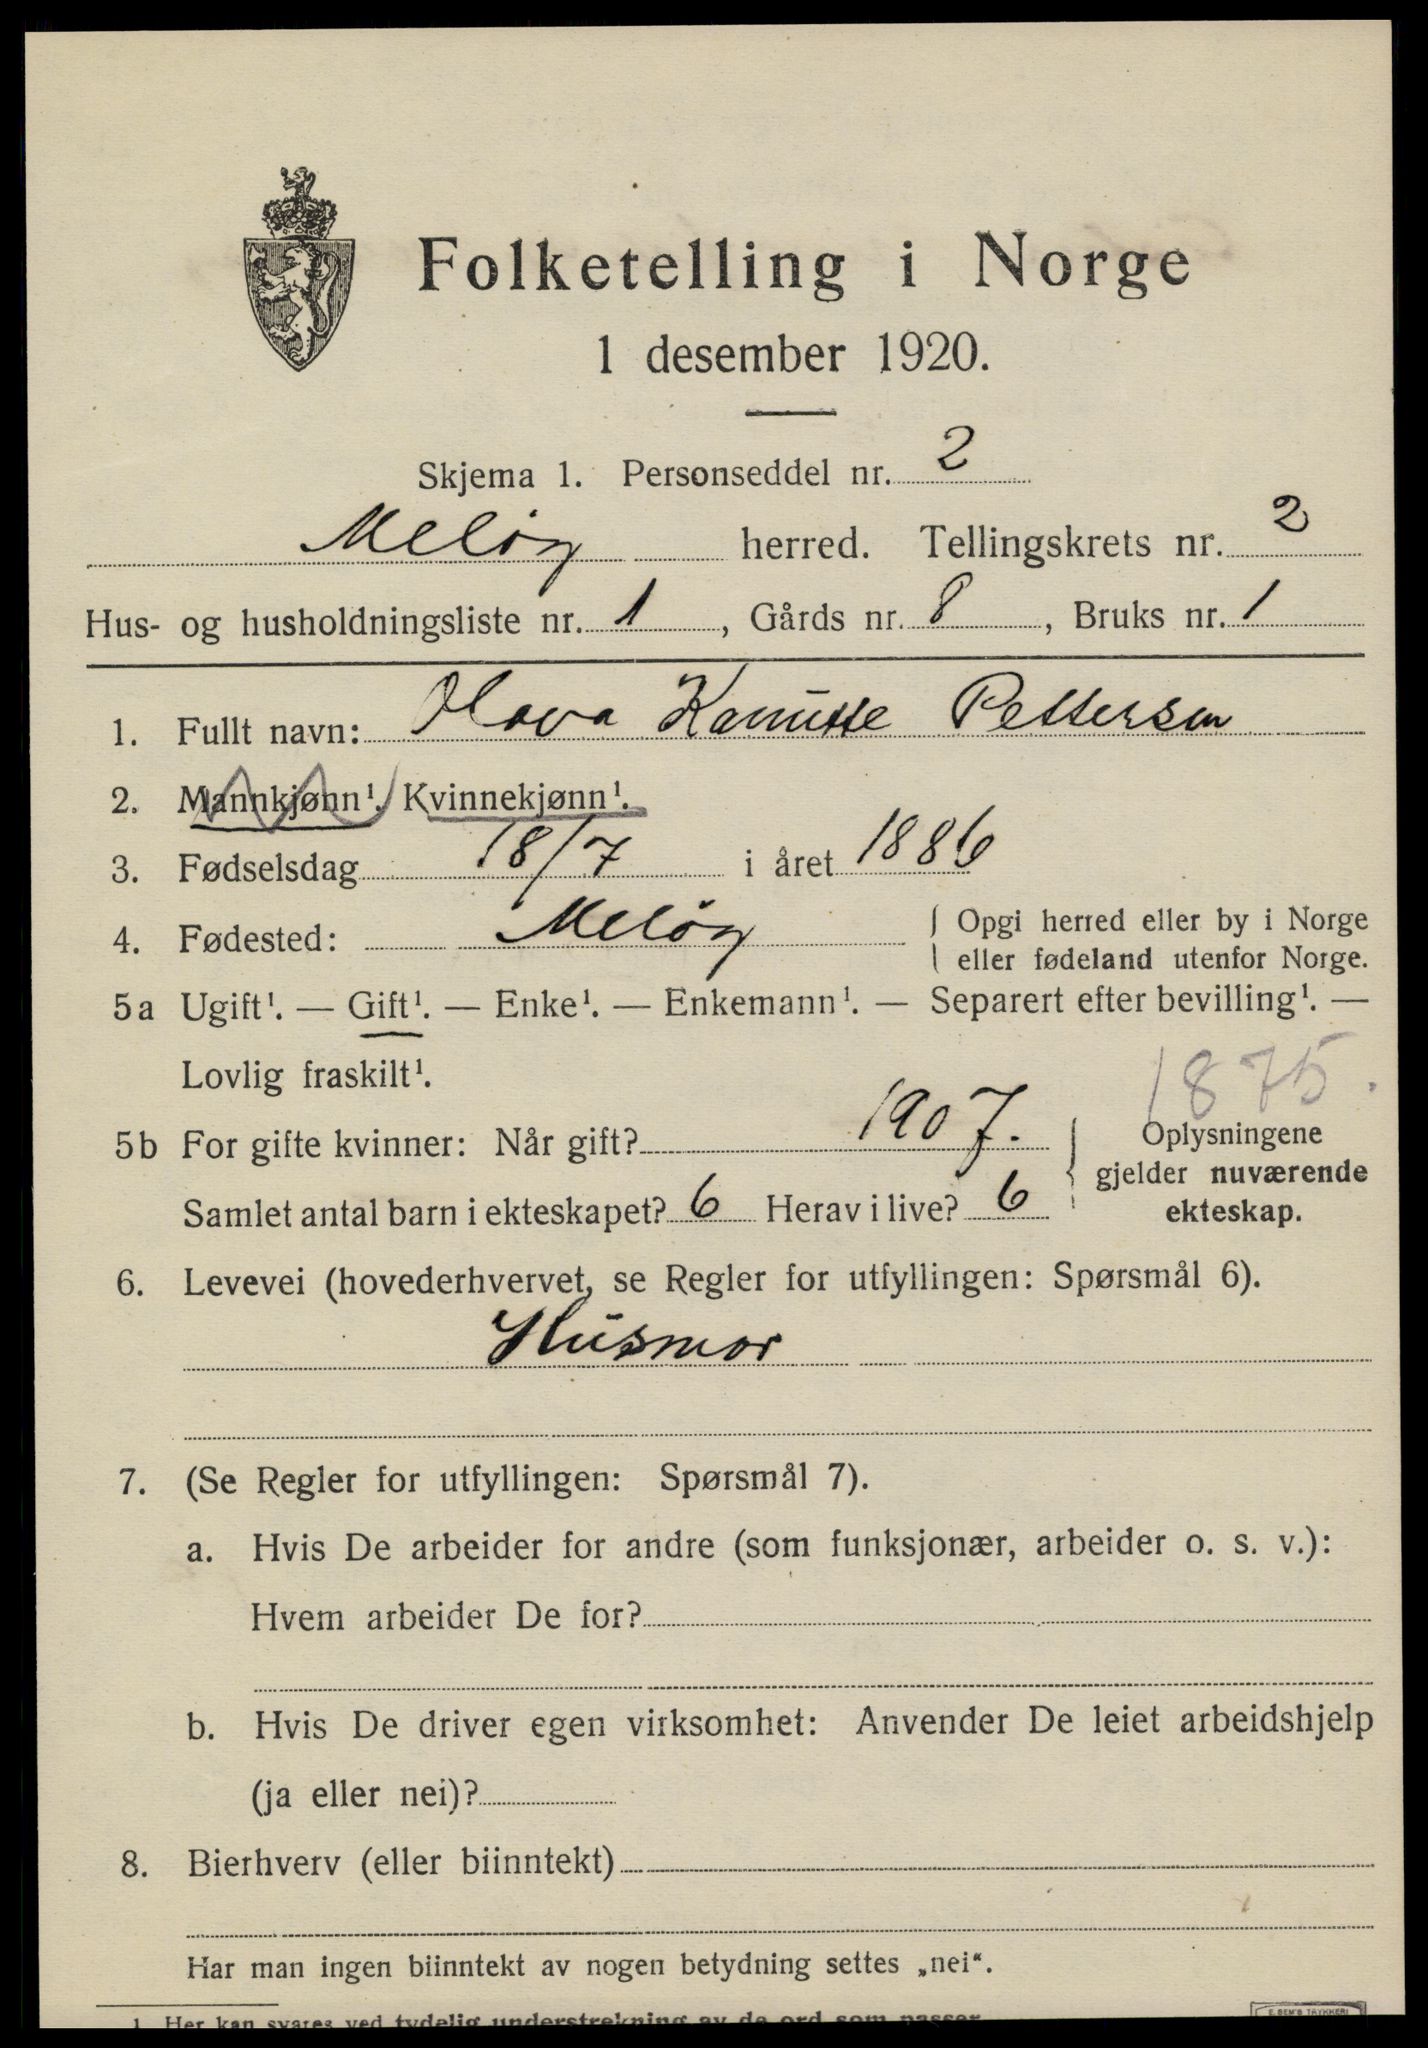 Folketelling i Norge
1 desember 1920.
Skjema 1. Personseddel nr. 2
Meløy herred. Tellingskrets nr. 2
Hus- og husholdningsliste nr. 1, Gårds nr. 8, Bruks nr. 1
1. Fullt navn: Olava Pettersen
2. Mannkjønn¹. Kvinnekjønn¹.
3. Fødselsdag 18/7 i året 1886
4. Fødested: Meløy { Opgi herred eller by i Norge
eller fødeland utenfor Norge.
5a Ugift¹. — Gift¹. — Enke¹. — Enkemann¹. — Separert efter bevilling¹. —
Lovlig fraskilt¹.
1875.
5b For gifte kvinner: Når gift? 1907. Oplysningene
gjelder nuværende
Samlet antal barn i ekteskapet? 6 Herav i live? 6 ekteskap.
6. Levevei (hovederhvervet, se Regler for utfyllingen: Spørsmål 6).
Husmor
7. (Se Regler for utfyllingen: Spørsmål 7).
a. Hvis De arbeider for andre (som funksjonær, arbeider o. s. v.):
Hvem arbeider De for?
b. Hvis De driver egen virksomhet: Anvender De leiet arbeidshjelp
(ja eller nei)?
8. Bierhverv (eller biinntekt)
Har man ingen biinntekt av nogen betydning settes „nei“.
1. Her kan svares ved tydelig understrekning av de ord som passer.
E. SEM'S TRYKKERI